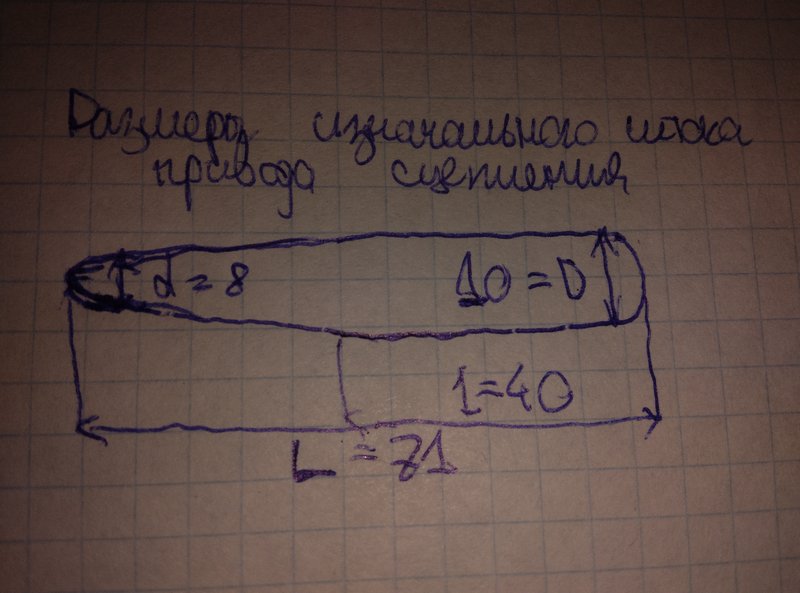 Размеры изначального штока
привода сцепления
d = 8
10 = D
l = 40
L = 71